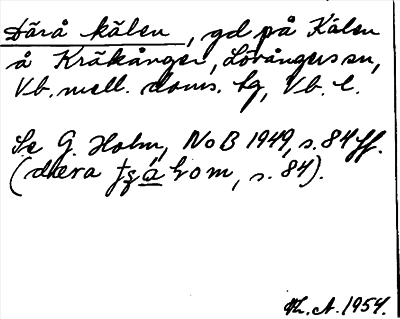 Därå kälen, gd på Kälen
å Kräkånger, Lövångers sn,
Vb. mell. doms. hg, Vb. l.
Se G. Holm, NoB 1949, s. 84 ff.
(dæra s. 84).
Th. A. 1954.